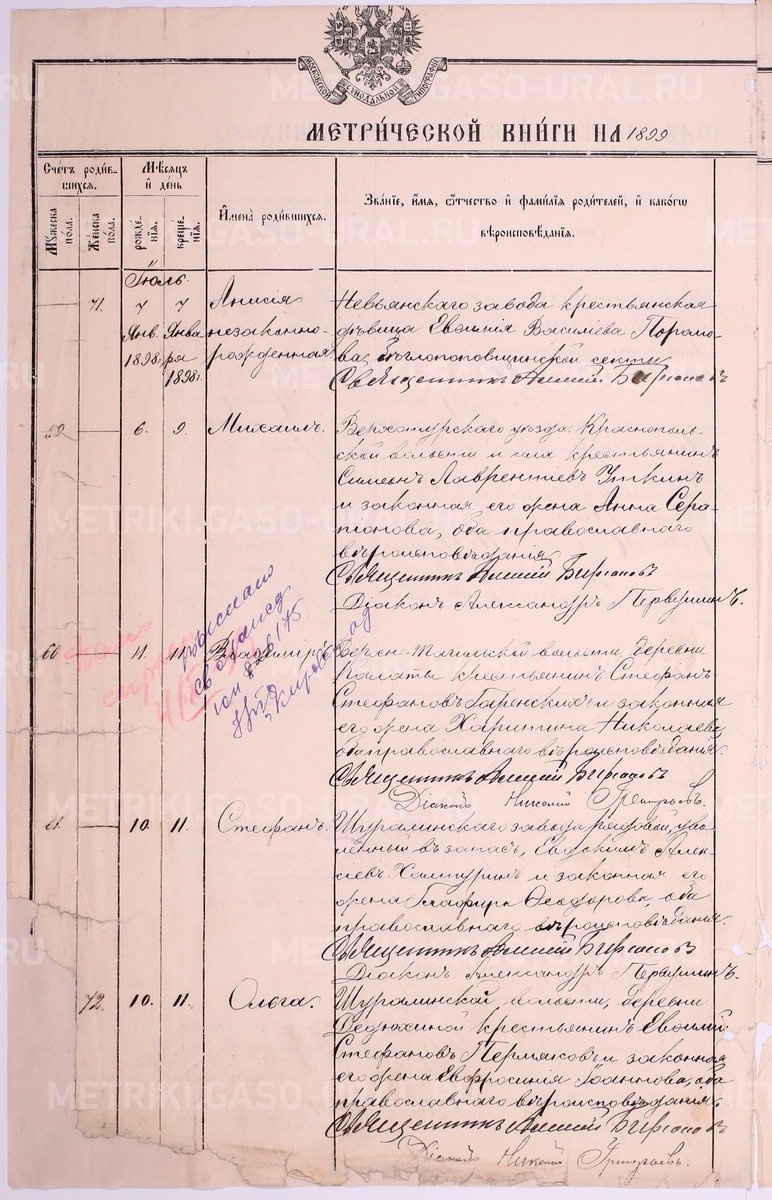 МОСКОВСКОЙ СѴНОДАЛЬНОЙ ТИПОГРАФІИ
МЕТРИ́ЧЕСКОЙ КНИ́ГИ НА 1899
Сче́тъ роди́в-
шихся.
Мѣ́сяцъ
и҆ де́нь
Мꙋ́жеска
по́ла.
Же́нска
по́ла.
рожде́-
нїѧ.
креще́-
нїѧ.
И҆мена̀ роди́вшихсѧ.
Зва́нїе, и҆́мѧ, ѻ҆́тчество и҆ фами́лїѧ роди́телей, и҆ како́гѡ
вѣроисповѣ́данїѧ.
Іюль.
71.
7
7
Янв.
1898.
Янва
ря
1898г.
Анисія
незаконно-
рожденная
Невьянскаго завода крестьянская
дѣвица Евѳимія Васильева
ва, Бѣглопоповщинской секты
Священникъ Алексій
59
6.
9.
Михаилъ.
Верхотурскаго уѣзда, Краснополь-
ской волости и села крестьянинъ
Симеонъ Лаврентіевъ Уткинъ
и законная его жена Анна Сера-
піонова, оба православнаго
вѣроисповѣданія
Священникъ Алексій
Діаконъ Александръ Первушинъ.
60
11.
11.
Владимиръ.
выслано
св
826175
Верхне-Тагильской волости, деревни
Калаты крестьянинъ Стефанъ
Стефановъ Гаренскихъ и законная
его жена Харитина Николаева
оба православнаго вѣроисповѣданія.
Священникъ Алексій
Діаконъ Николай Григорьевъ.
61.
10.
11.
Стефанъ.
Шуралинскаго завода рядовой, уво-
ленный въ запасъ, Евдокимъ Алек-
сѣевъ и законная его
жена Глафира Ѳеодорова, оба
православнаго вѣроисповѣданія.
Священникъ Алексій
Діаконъ Александръ Первушинъ.
72.
10.
11.
Ольга.
Шуралинской волости, деревни
Федюхиной крестьянинъ Евѳимій
Стефановъ Пермяковъ и законная
его жена Евфросинія Іоаннова, оба
православнаго вѣроисповѣданія.
Священникъ Алексій
Діаконъ Николай Григорьевъ.
METRIKI.GASO-URAL.RU